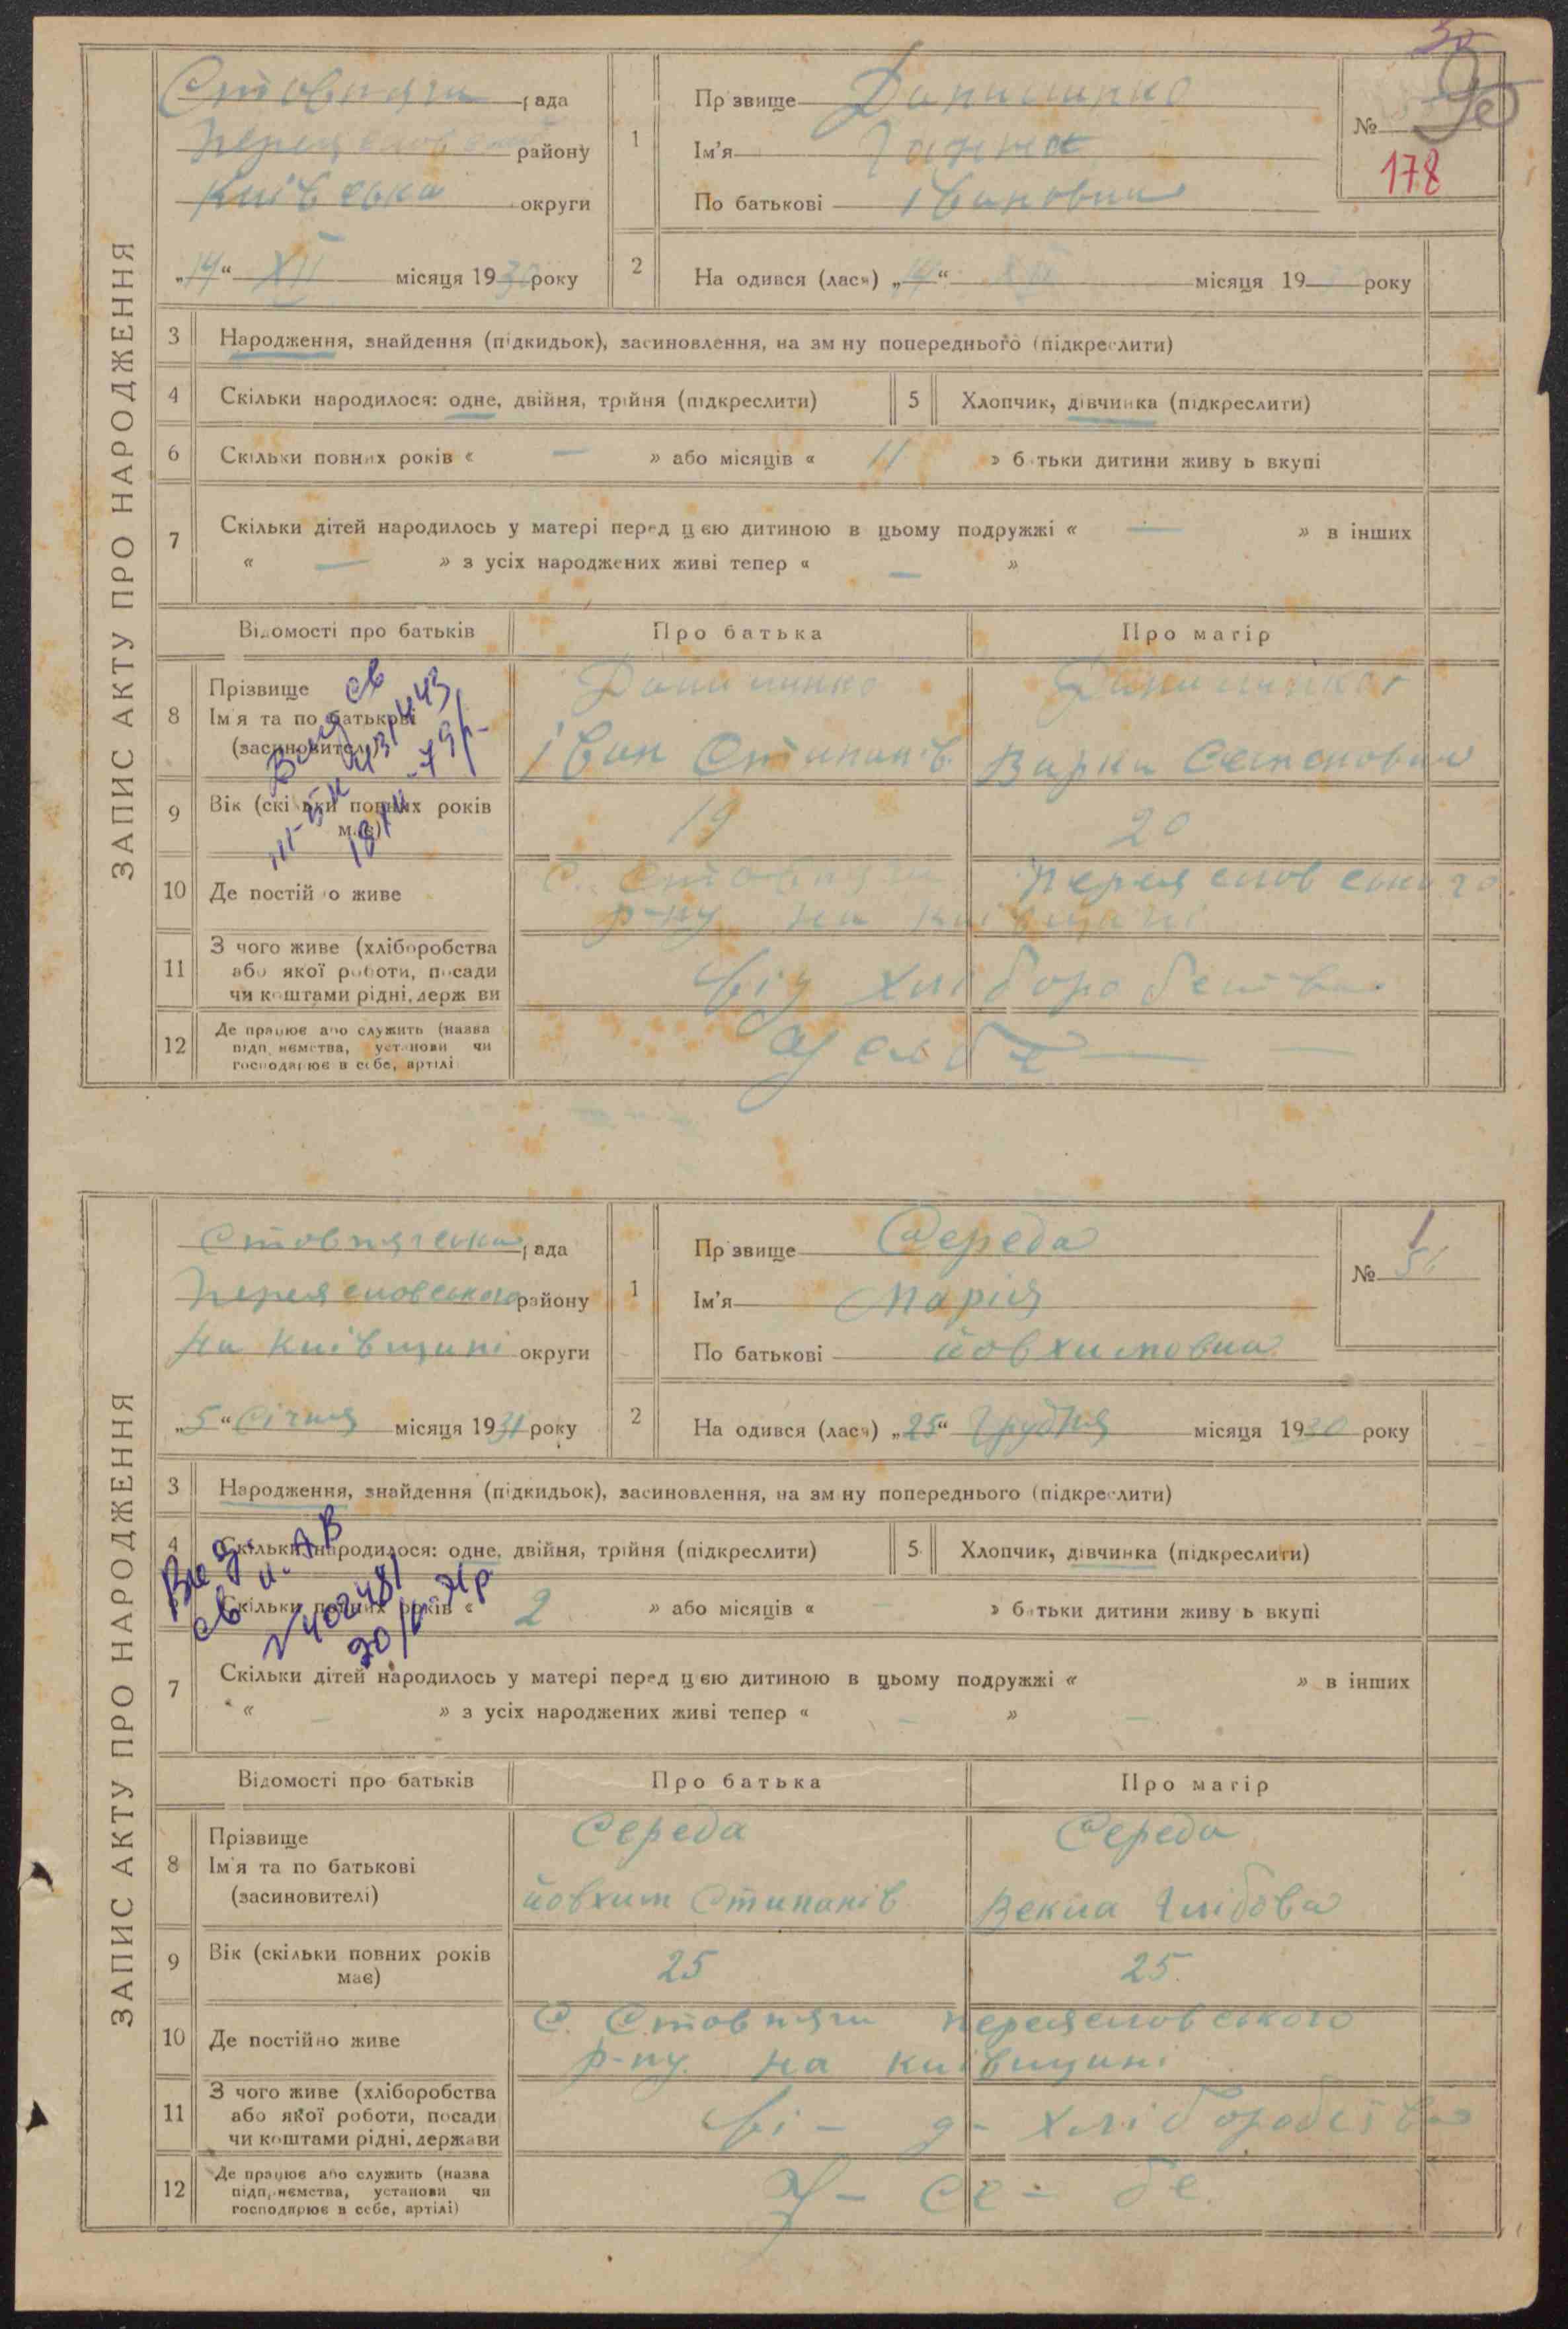 ЗАПИС АКТУ ПРО НАРОДЖЕННЯ
Стовпяги рада
району
Київська округи
„14“ XII місяця 1930 року
1
Прізвище
Ім'я Ганна
По батькові Івановна
№
178
2
Народився (лася) „14“ XII місяця 19 року
3 Народження, знайдення (підкидьок), засиновлення, на зміну попереднього (підкреслити)
4 Скільки народилося: одне, двійня, трійня (підкреслити)
5 Хлопчик, дівчинка (підкреслити)
6 Скільки повних років « — » або місяців « 11 » батьки дитини живуть вкупі
7 Скільки дітей народилось у матері перед цією дитиною в цьому подружжі « — » в інших
« — » з усіх народжених живі тепер « — »
Відомості про батьків Про батька Про матір
8 Прізвище
Ім'я та по батькові
(засиновителі)
Іван Степанів
Варка Семеновна
9 Вік (скільки повних років має)
19
20
10 Де постійно живе
с. Стовпяги Переяславського
р-ну на Київщині
11 З чого живе (хліборобства
або якої роботи, посади
чи коштами рідні, держави
від хліборобства
12 Де працює або служить (назва
підприємства, установи чи
господарює в себе, артілі)
У себе —
ЗАПИС АКТУ ПРО НАРОДЖЕННЯ
Стовпягська рада
Переяславського району
на Київщині округи
„5“ Січня місяця 1931 року
1
Прізвище Середа
Ім'я Марія
По батькові Йовхимовна
№
1
2
Народився (лася) „25“ Грудня місяця 1930 року
3 Народження, знайдення (підкидьок), засиновлення, на зміну попереднього (підкреслити)
4 Скільки народилося: одне, двійня, трійня (підкреслити)
5 Хлопчик, дівчинка (підкреслити)
Скільки повних років « 2 » або місяців « — » батьки дитини живуть вкупі
7 Скільки дітей народилось у матері перед цією дитиною в цьому подружжі « » в інших
« — » з усіх народжених живі тепер « — » —
Відомості про батьків Про батька Про матір
8 Прізвище
Ім'я та по батькові
(засиновителі)
Середа
Йовхим Степанів
Середа
Векла Глібова
9 Вік (скільки повних років
має)
25
25.
10 Де постійно живе
С. Стовпяги Переяславського
р-ну. на Київщині
11 З чого живе (хліборобства
або якої роботи, посади
чи коштами рідні, держави
ві – д – хліборобства
12 Де працює або служить (назва
підприємства, установи чи
господарює в себе, артілі)
У – се – бе.